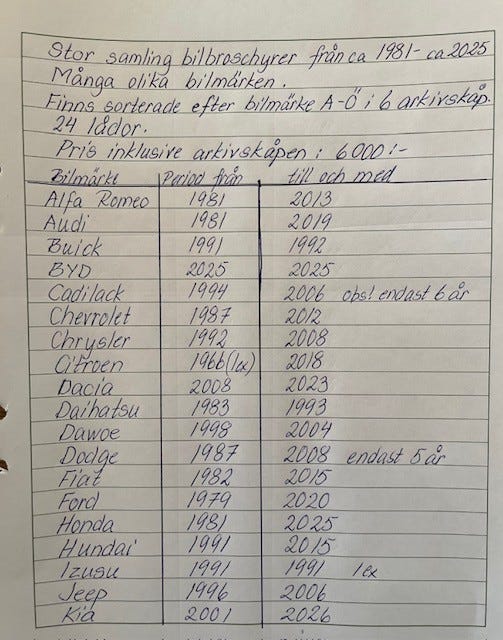 Stor samling bilbroschyrer från ca 1981- ca 2025
Många olika bilmärken.
Finns sorterade efter bilmärke A-Ö i 6 arkivskåp.
24 lådor.
Pris inklusive arkivskåpen : 6000:-
Bilmärke Period från till och med
Alfa Romeo 1981 2013
Audi 1981 2019
Buick 1991 1992
BYD 2025 2025
Cadilack 1994 2006 obs! endast 6 år
Chevrolet 1987 2012
Chrysler 1992 2008
Citroen 1966 (1ex) 2018
Dacia 2008 2023
Daihatsu 1983 1993
Dawoe 1998 2004
Dodge 1987 2008 endast 5 år
Fiat 1982 2015
Ford 1979 2020
Honda 1981 2025
Hundai 1991 2015
Izusu 1991 1991 1ex
Jeep 1996 2006
Kia 2001 2026